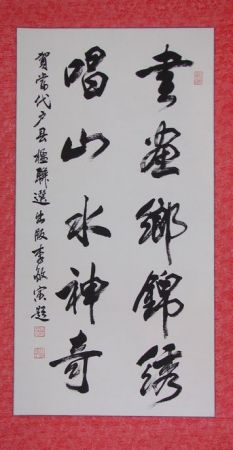 書畫鄉錦綉
唱山水神奇
賀當代户县楹聯選出版李敏寅題